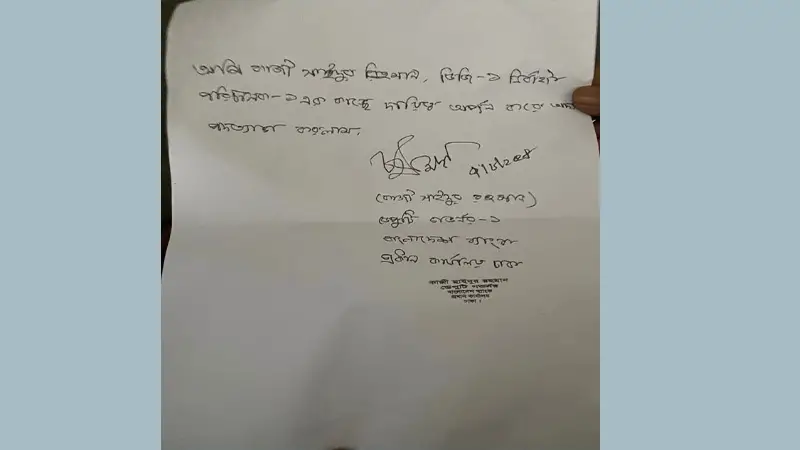 আমি কাজী ছাইদুর রহমান, ডিজি-১ নির্বাহী
পরিচালক-১ এর কাছে দায়িত্ব অর্পন করে
পদত্যাগ করলাম।
(কাজী ছাইদুর রহমান)
ডেপুটি গভর্নর-১
বাংলাদেশ ব্যাংক
প্রধান কার্যালয় ঢাকা
কাজী ছাইদুর রহমান
ডেপুটি গভর্নর
বাংলাদেশ ব্যাংক
প্রধান কার্যালয়
ঢাকা।